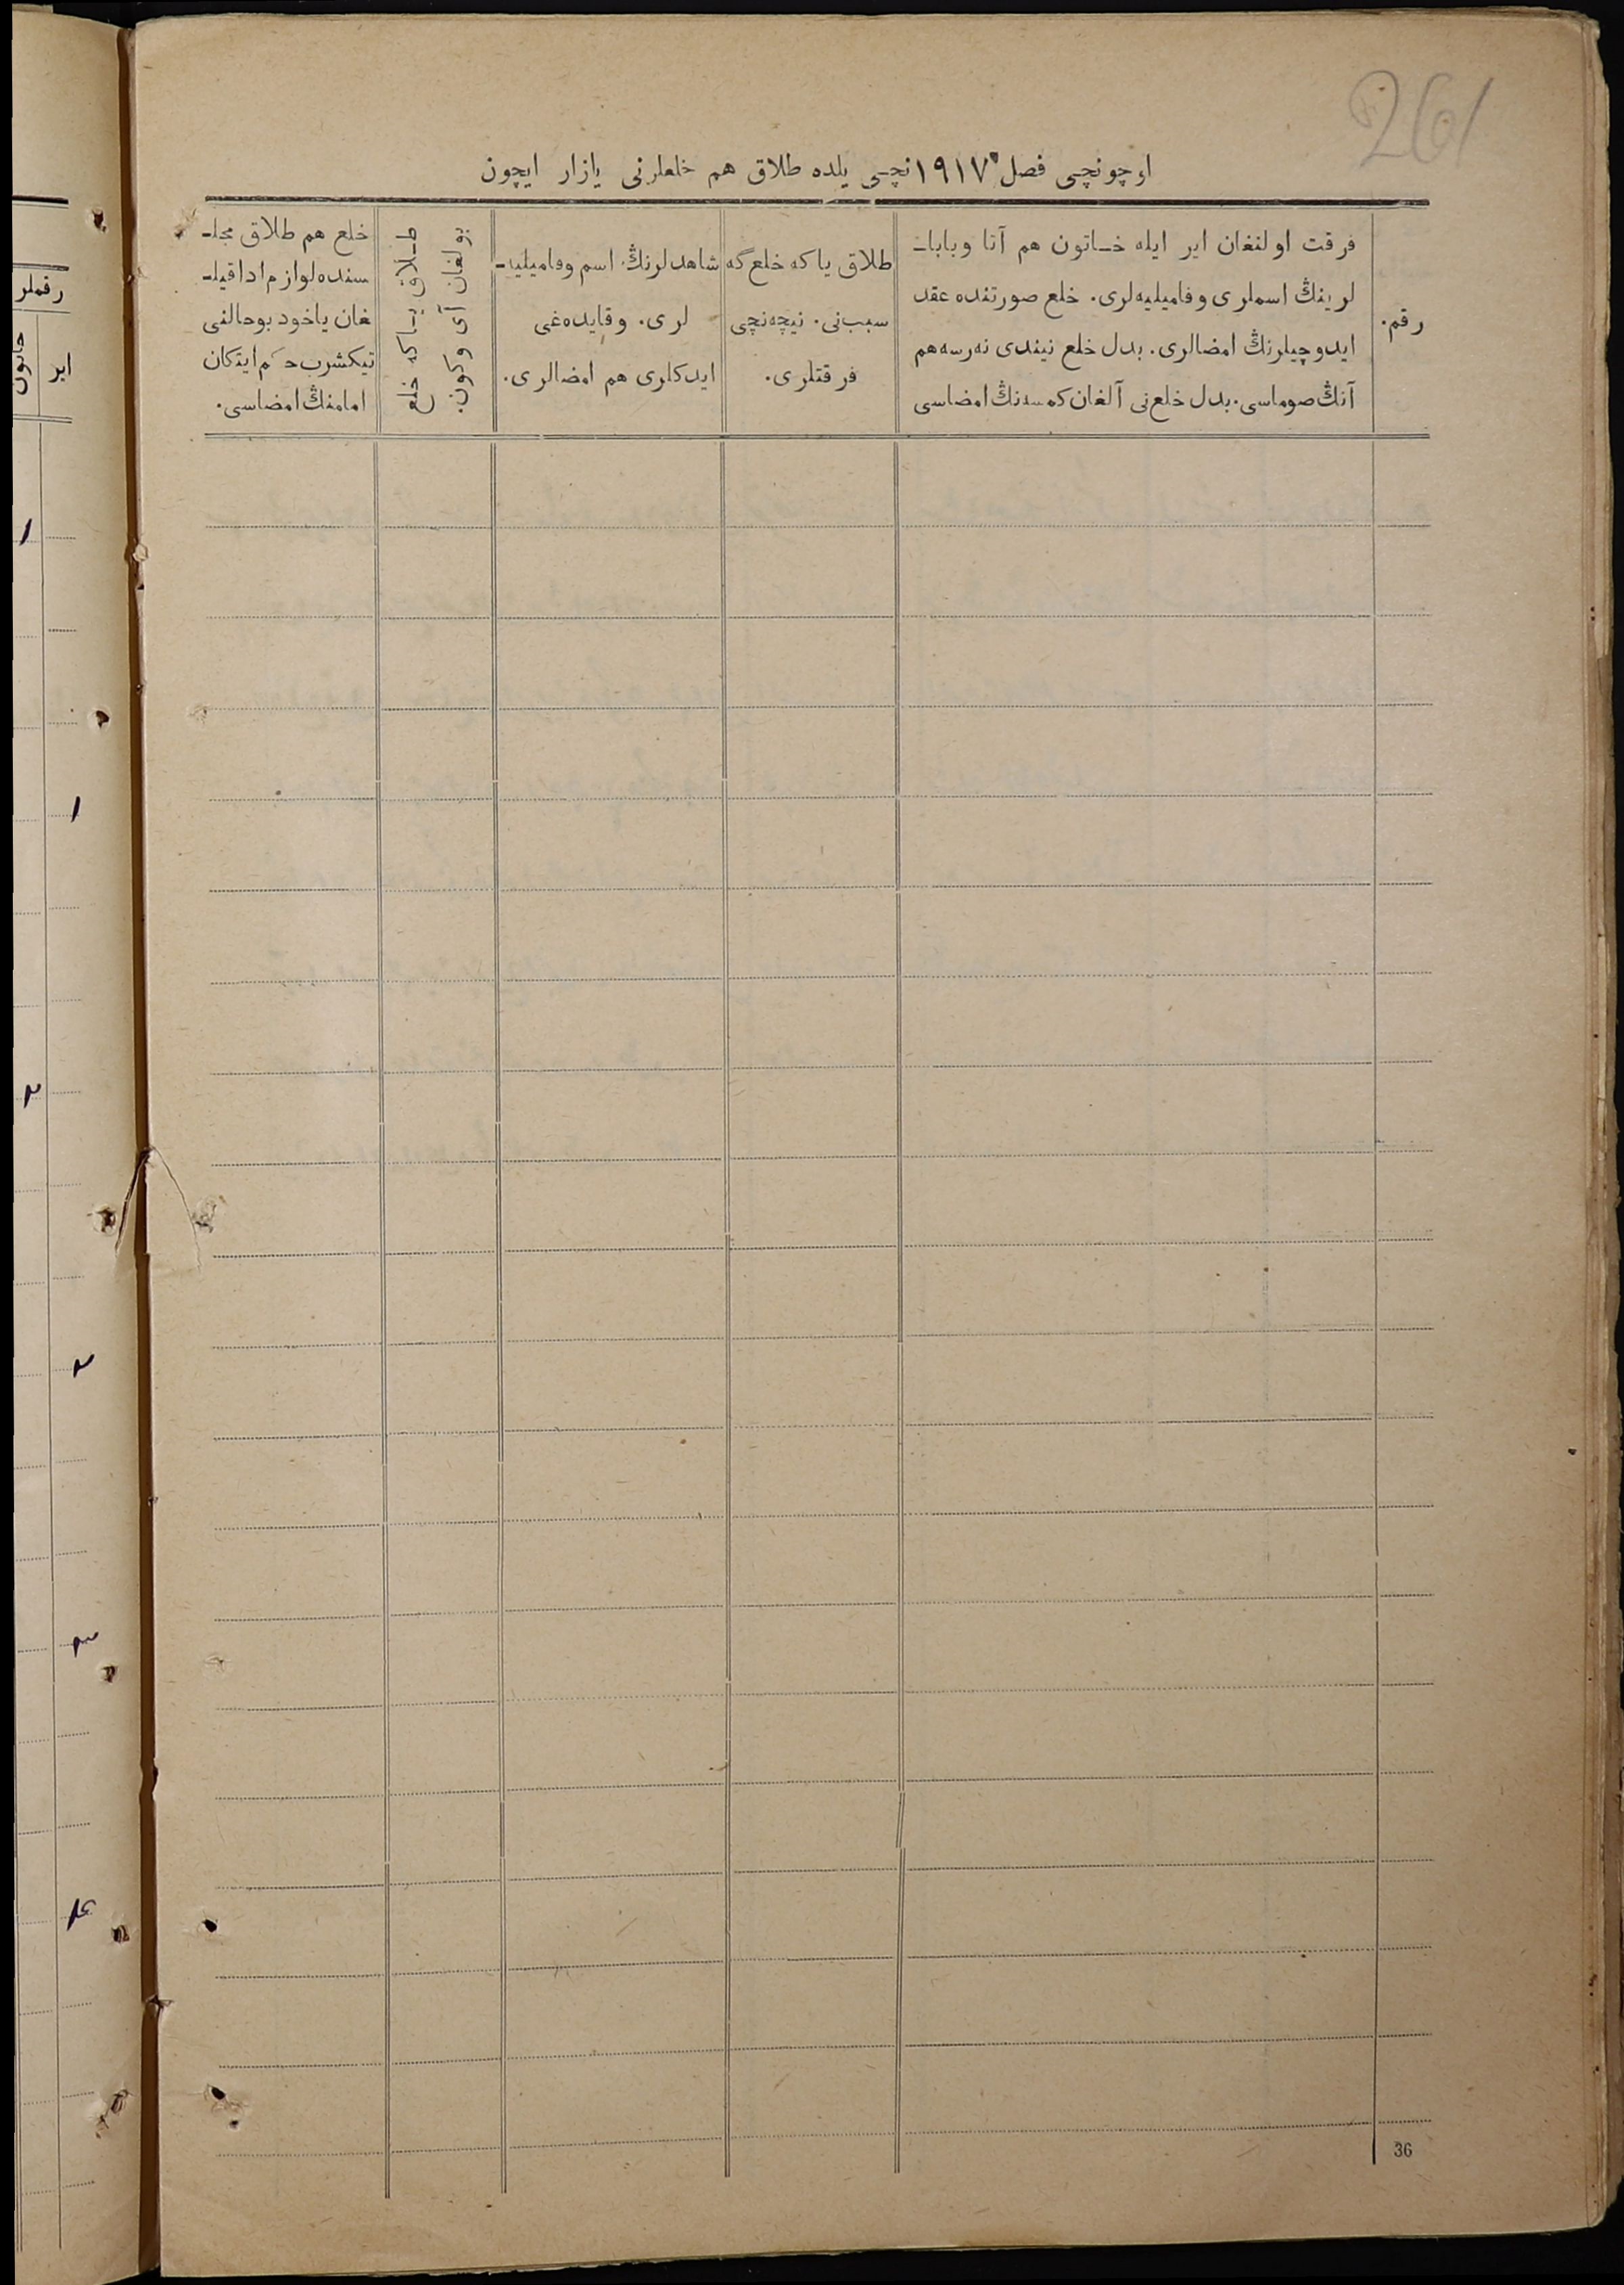 261
اوچونچی فصل ۱۹۱۷ نچی یلده طلاق هم خلعلرنی یازار ایچون
رقم.
فرقت اولنغان ایر ایله خاتون هم آتا وبابا-
لرینڭ اسملری وفامیلیه‌لری. خلع صورتنده عقد
ایدوچیلرنڭ امضالری. بدل خلع نیندی نه‌رسه هم
آنڭ صوماسی. بدل خلع‌نی آلغان کمسه‌نڭ امضاسی
طلاق یاکه خلع‌گه
سبب‌نی. نیچه‌نچی
فرقتلری.
شاهدلرنڭ اسم وفامیلیه-
لری. وقایده‌غی
ایدکلری هم امضالری.
طلاق یاکه خلع
بولغان آی وکون.
خلع هم طلاق مجلـ
سنده لوازم ادا قیلـ
غان یاخود بوحالنی
تیکشرب حکم ایتکان
امامنڭ امضاسی.
36
رقملر
ایر
خاتون
۱
۱
۲
۲
۳
۴